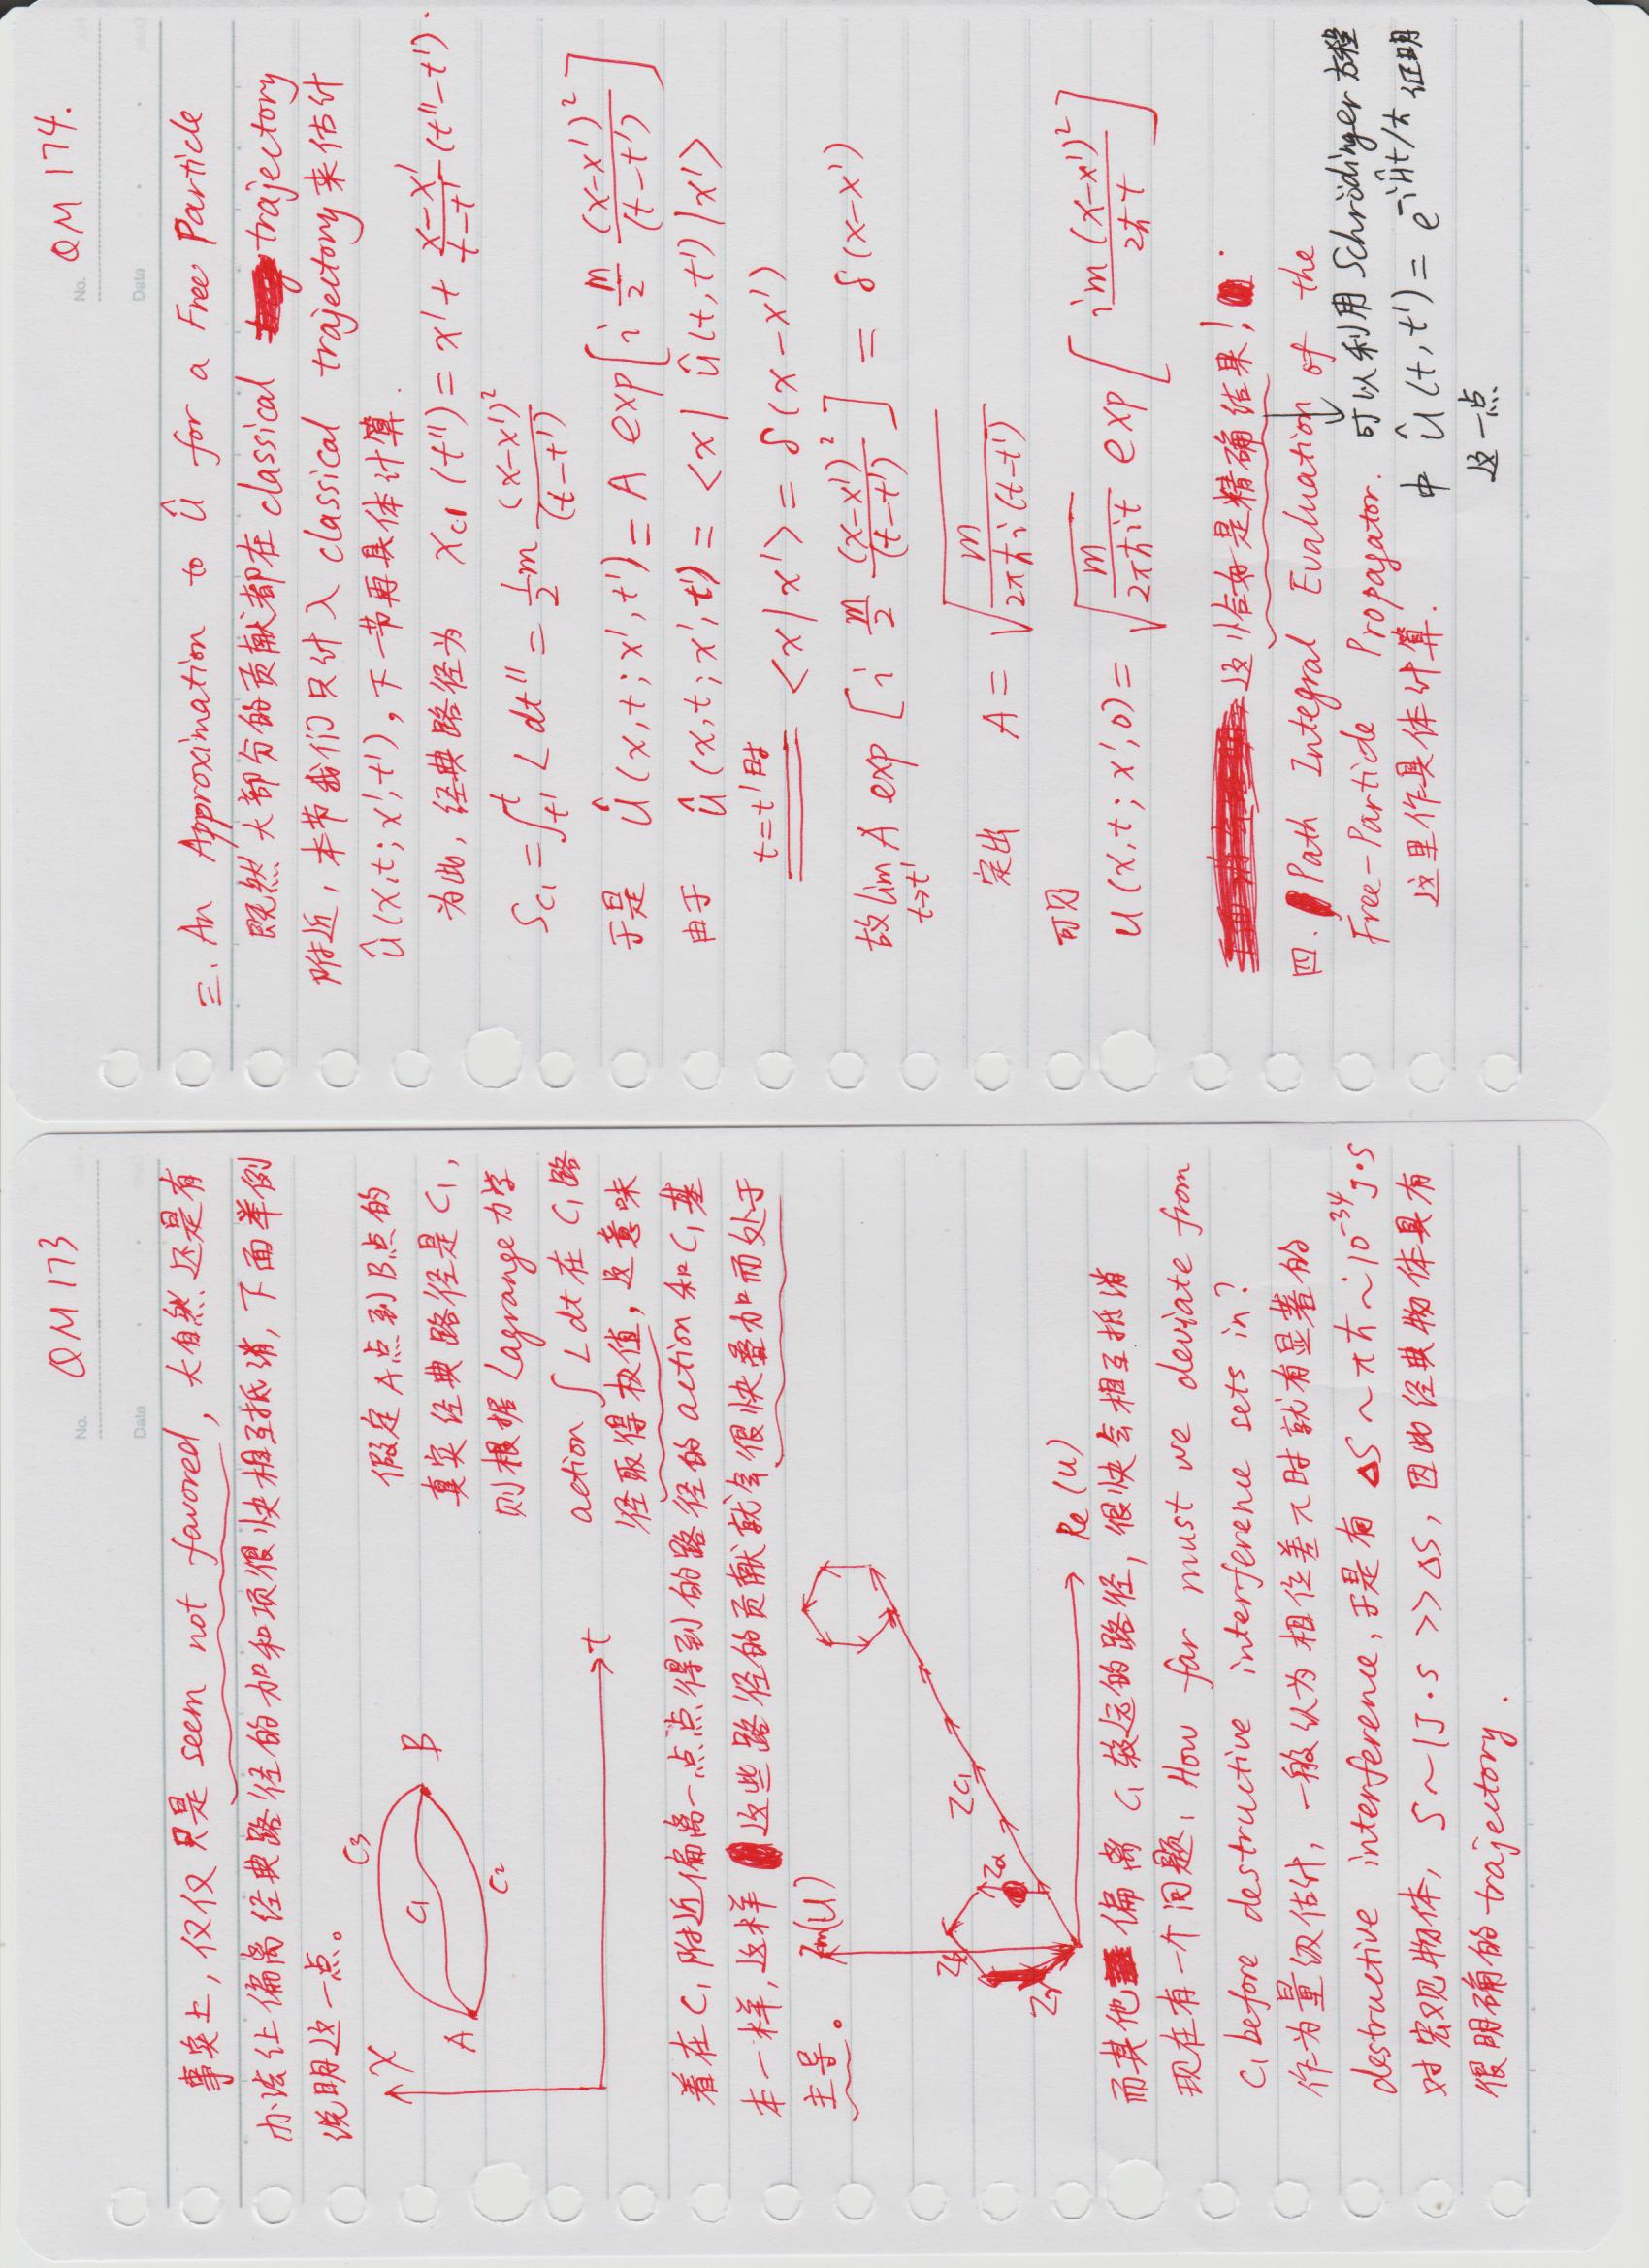 No. QM 173
Date
事实上，仅仅只是 seem not favored，大自然还是有
办法让偏离经典路径的加和项很快相互抵消，下面举例
说明这一点。
X
C3
C1
A
B
C2
t
假定A点到B点的
真实经典路径是C1，
则根据Lagrange力学
action ∫Ldt在C1路
径取得极值，这意味
着在C1附近偏离一点点得到的路径的action和C1基
本一样，这样这些路径的贡献就会很快叠加而处于
主导。
Im(U)
Zβ
Zα
Zγ
ZC1
Re(U)
而其他偏离C1较远的路径，很快会相互抵消
现在有一个问题，How far must we deviate from
C1 before destructive interference sets in?
作为量级估计，一般认为相位差π时就有显著的
destructive interference，于是有 ΔS ~ πħ ~ 10^-34 J·S
对宏观物体，S ~ 1J·s >> ΔS，因此经典物体具有
很明确的 trajectory.
No. QM 174.
Date
三. An Approximation to Û for a Free Particle
既然大部分的贡献都在 classical trajectory
附近，本节我们只计入 classical trajectory来估计
Û(x,t; x',t')，下一节再具体计算.
为此，经典路径为 Xcl(t'') = x' + (x-x')/(t-t') (t''-t').
Scl = ∫_{t'}^{t} L dt'' = 1/2 m (x-x')²/(t-t')
于是 Û(x,t; x',t') = A exp[i m/2 (x-x')²/(t-t')]
由于 Û(x,t; x',t') = <x| Û(t,t') |x'>
t=t'时 <x|x'> = δ(x-x')
故 lim_{t→t'} A exp[i m/2 (x-x')²/(t-t')] = δ(x-x')
定出 A = √(m/(2πħi(t-t')))
可见
U(x,t; x',0) = √(m/(2πħit)) exp[im(x-x')²/(2ħt)]
这恰好是精确结果！
四. Path Integral Evaluation of the
Free-Particle Propagator.
这里作具体计算.
可以利用 Schrödinger 方程
中 Û(t,t') = e^{-iĤt/ħ} 证明
这一点